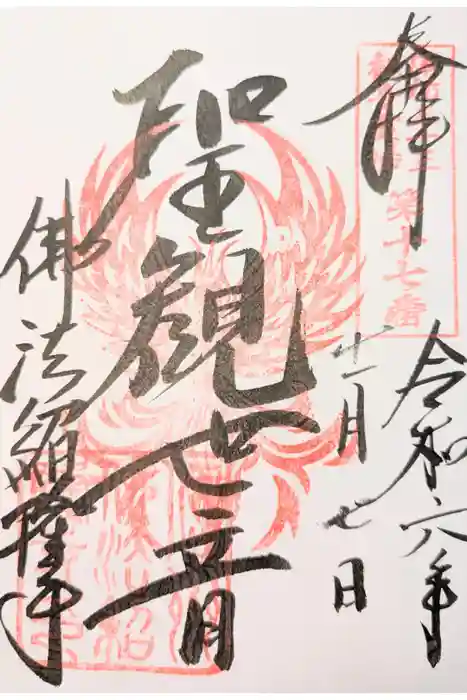 奉拝
第十七番
令和六年
十一月七日
聖観世音
佛法紹隆寺